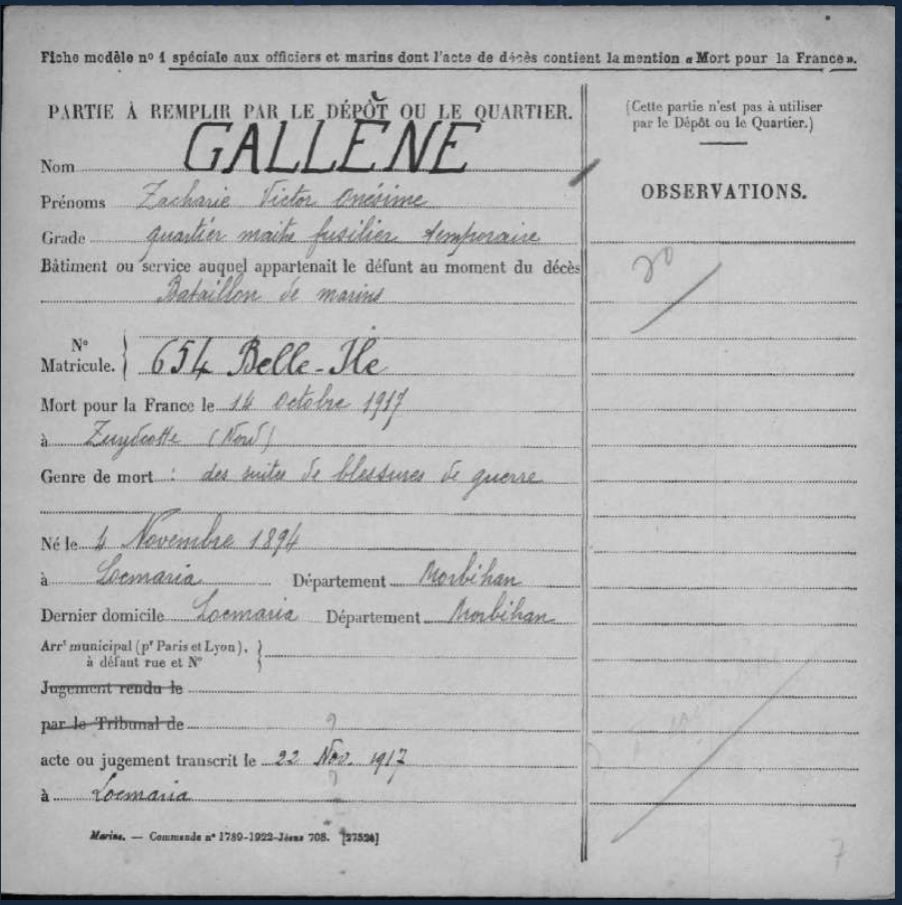 Fiche modèle nº 1 spéciale aux officiers et marins dont l'acte de décès contient la mention « Mort pour la France ».
PARTIE À REMPLIR PAR LE DÉPÔT OU LE QUARTIER.
Nom GALLENE
Prénoms Zacharie Victor Onésime
Grade quartier maitre fusilier temporaire
Bâtiment ou service auquel appartenait le défunt au moment du décès
Bataillon de marins
Nº
Matricule. } 654 Belle-Ile
Mort pour la France le 14 Octobre 1917
à Zuydcotte (Nord)
Genre de mort : des suites de blessures de guerre
Né le 4 Novembre 1894
à Locmaria Département Morbihan
Dernier domicile Locmaria Département Morbihan
Arrt municipal (pr Paris et Lyon), }
à défaut rue et Nº
Jugement rendu le
par le Tribunal de
acte ou jugement transcrit le 22 Nov. 1917
à Locmaria
Marine. — Commande nº 1789-1922-Jésus 708. [27524]
(Cette partie n'est pas à utiliser
par le Dépôt ou le Quartier.)
OBSERVATIONS.
20
7